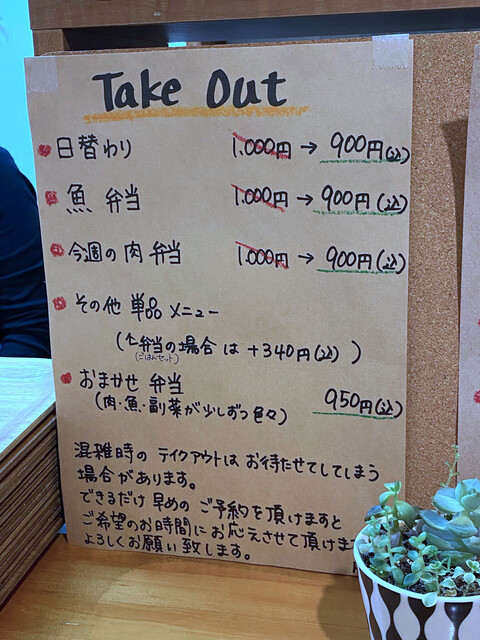 Take Out
日替わり 1.000円 → 900円(込)
魚 弁当 1.000円 → 900円(込)
今週の肉 弁当 1.000円 → 900円(込)
その他 単品 メニュー
(弁当の場合 は +340円(込) )
(ごはんセット)
おまかせ 弁当 950円(込)
(肉・魚・副菜が少しずつ色々)
混雑時の テイクアウトは お待たせてしてしまう
場合があります。
できるだけ 早めの ご予約を頂けますと
ご希望のお時間に お応えさせて頂けま
よろしくお願い致します。